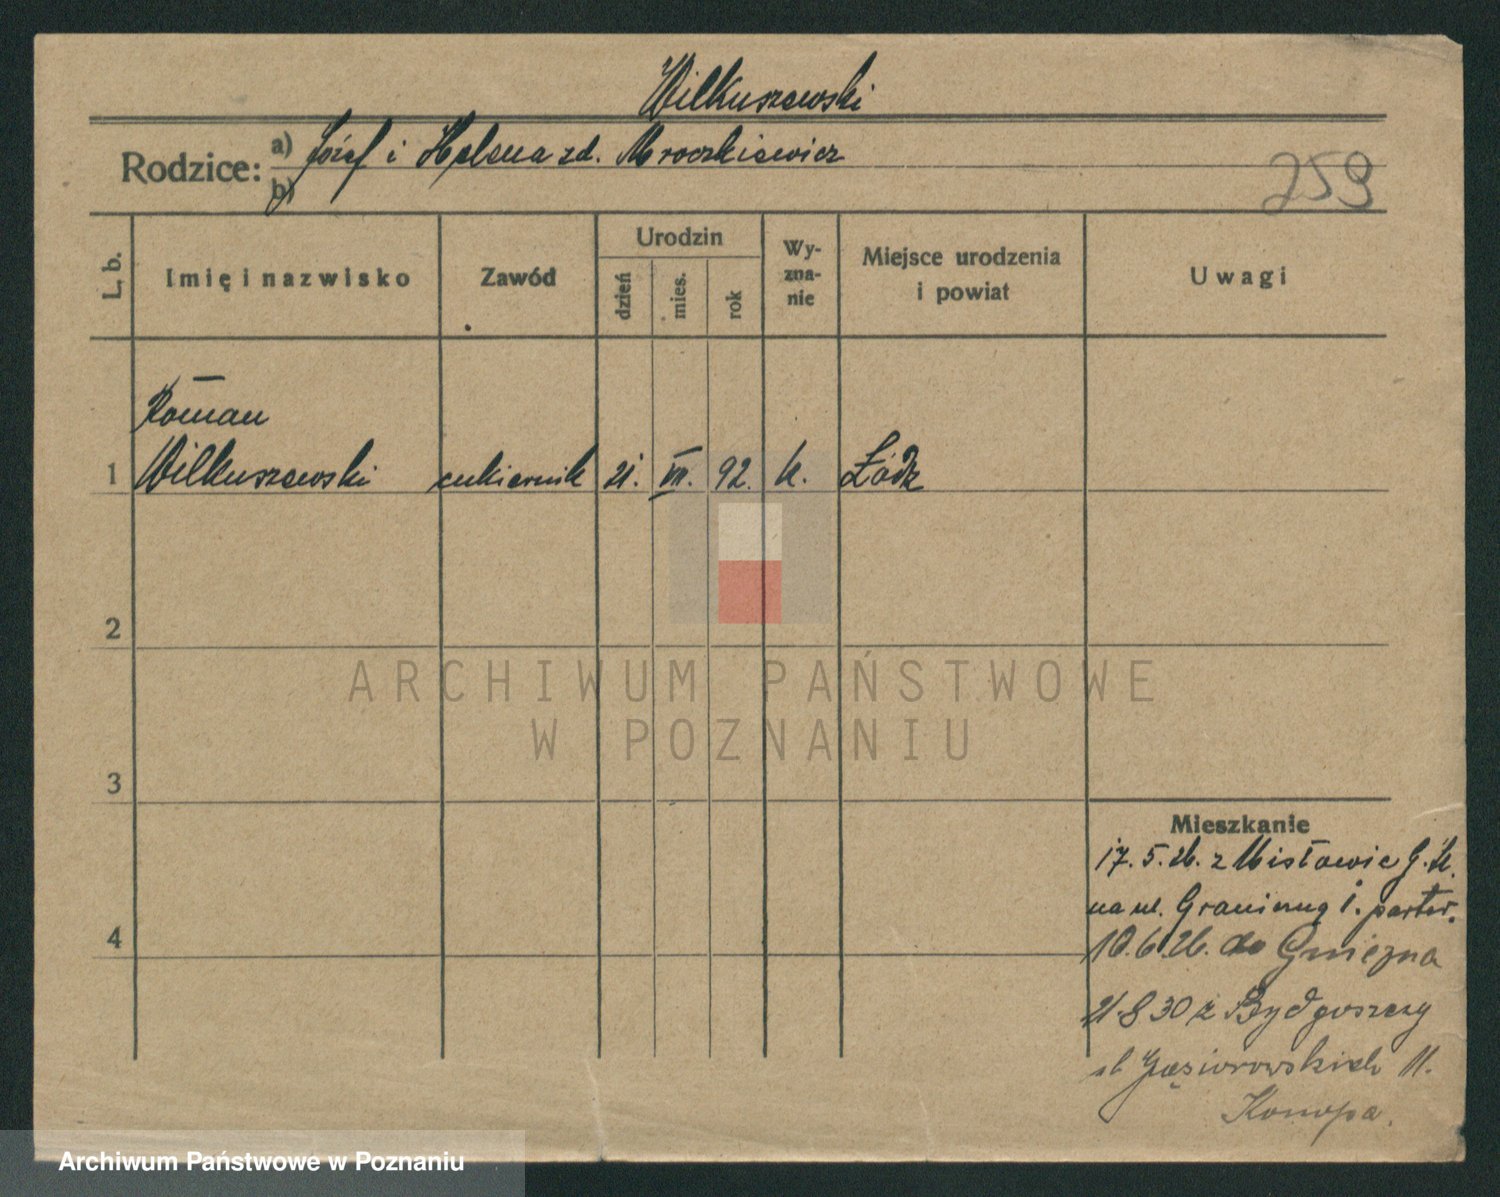 Wilkuszewski
Rodzice: a) Józef i Helena zd. Mroczkiewicz
b)
259
L. b.
Imię i nazwisko
Zawód
Urodzin
dzień
mies.
rok
Wy-
zna-
nie
Miejsce urodzenia
i powiat
Uwagi
Roman
1 Wilkuszewski cukiernik 21. VII. 92. k. Łódź
2
3
4
Mieszkanie
17. 5. 26. z Misłowic G. Śl.
na ul. Graniczną 1. parter.
10. 6. 26. do Gniezna
21 8 30 z Bydgoszczy
Gąsiorowskich 11.
Konopa.
ARCHIWUM PAŃSTWOWE
W POZNANIU
Archiwum Państwowe w Poznaniu